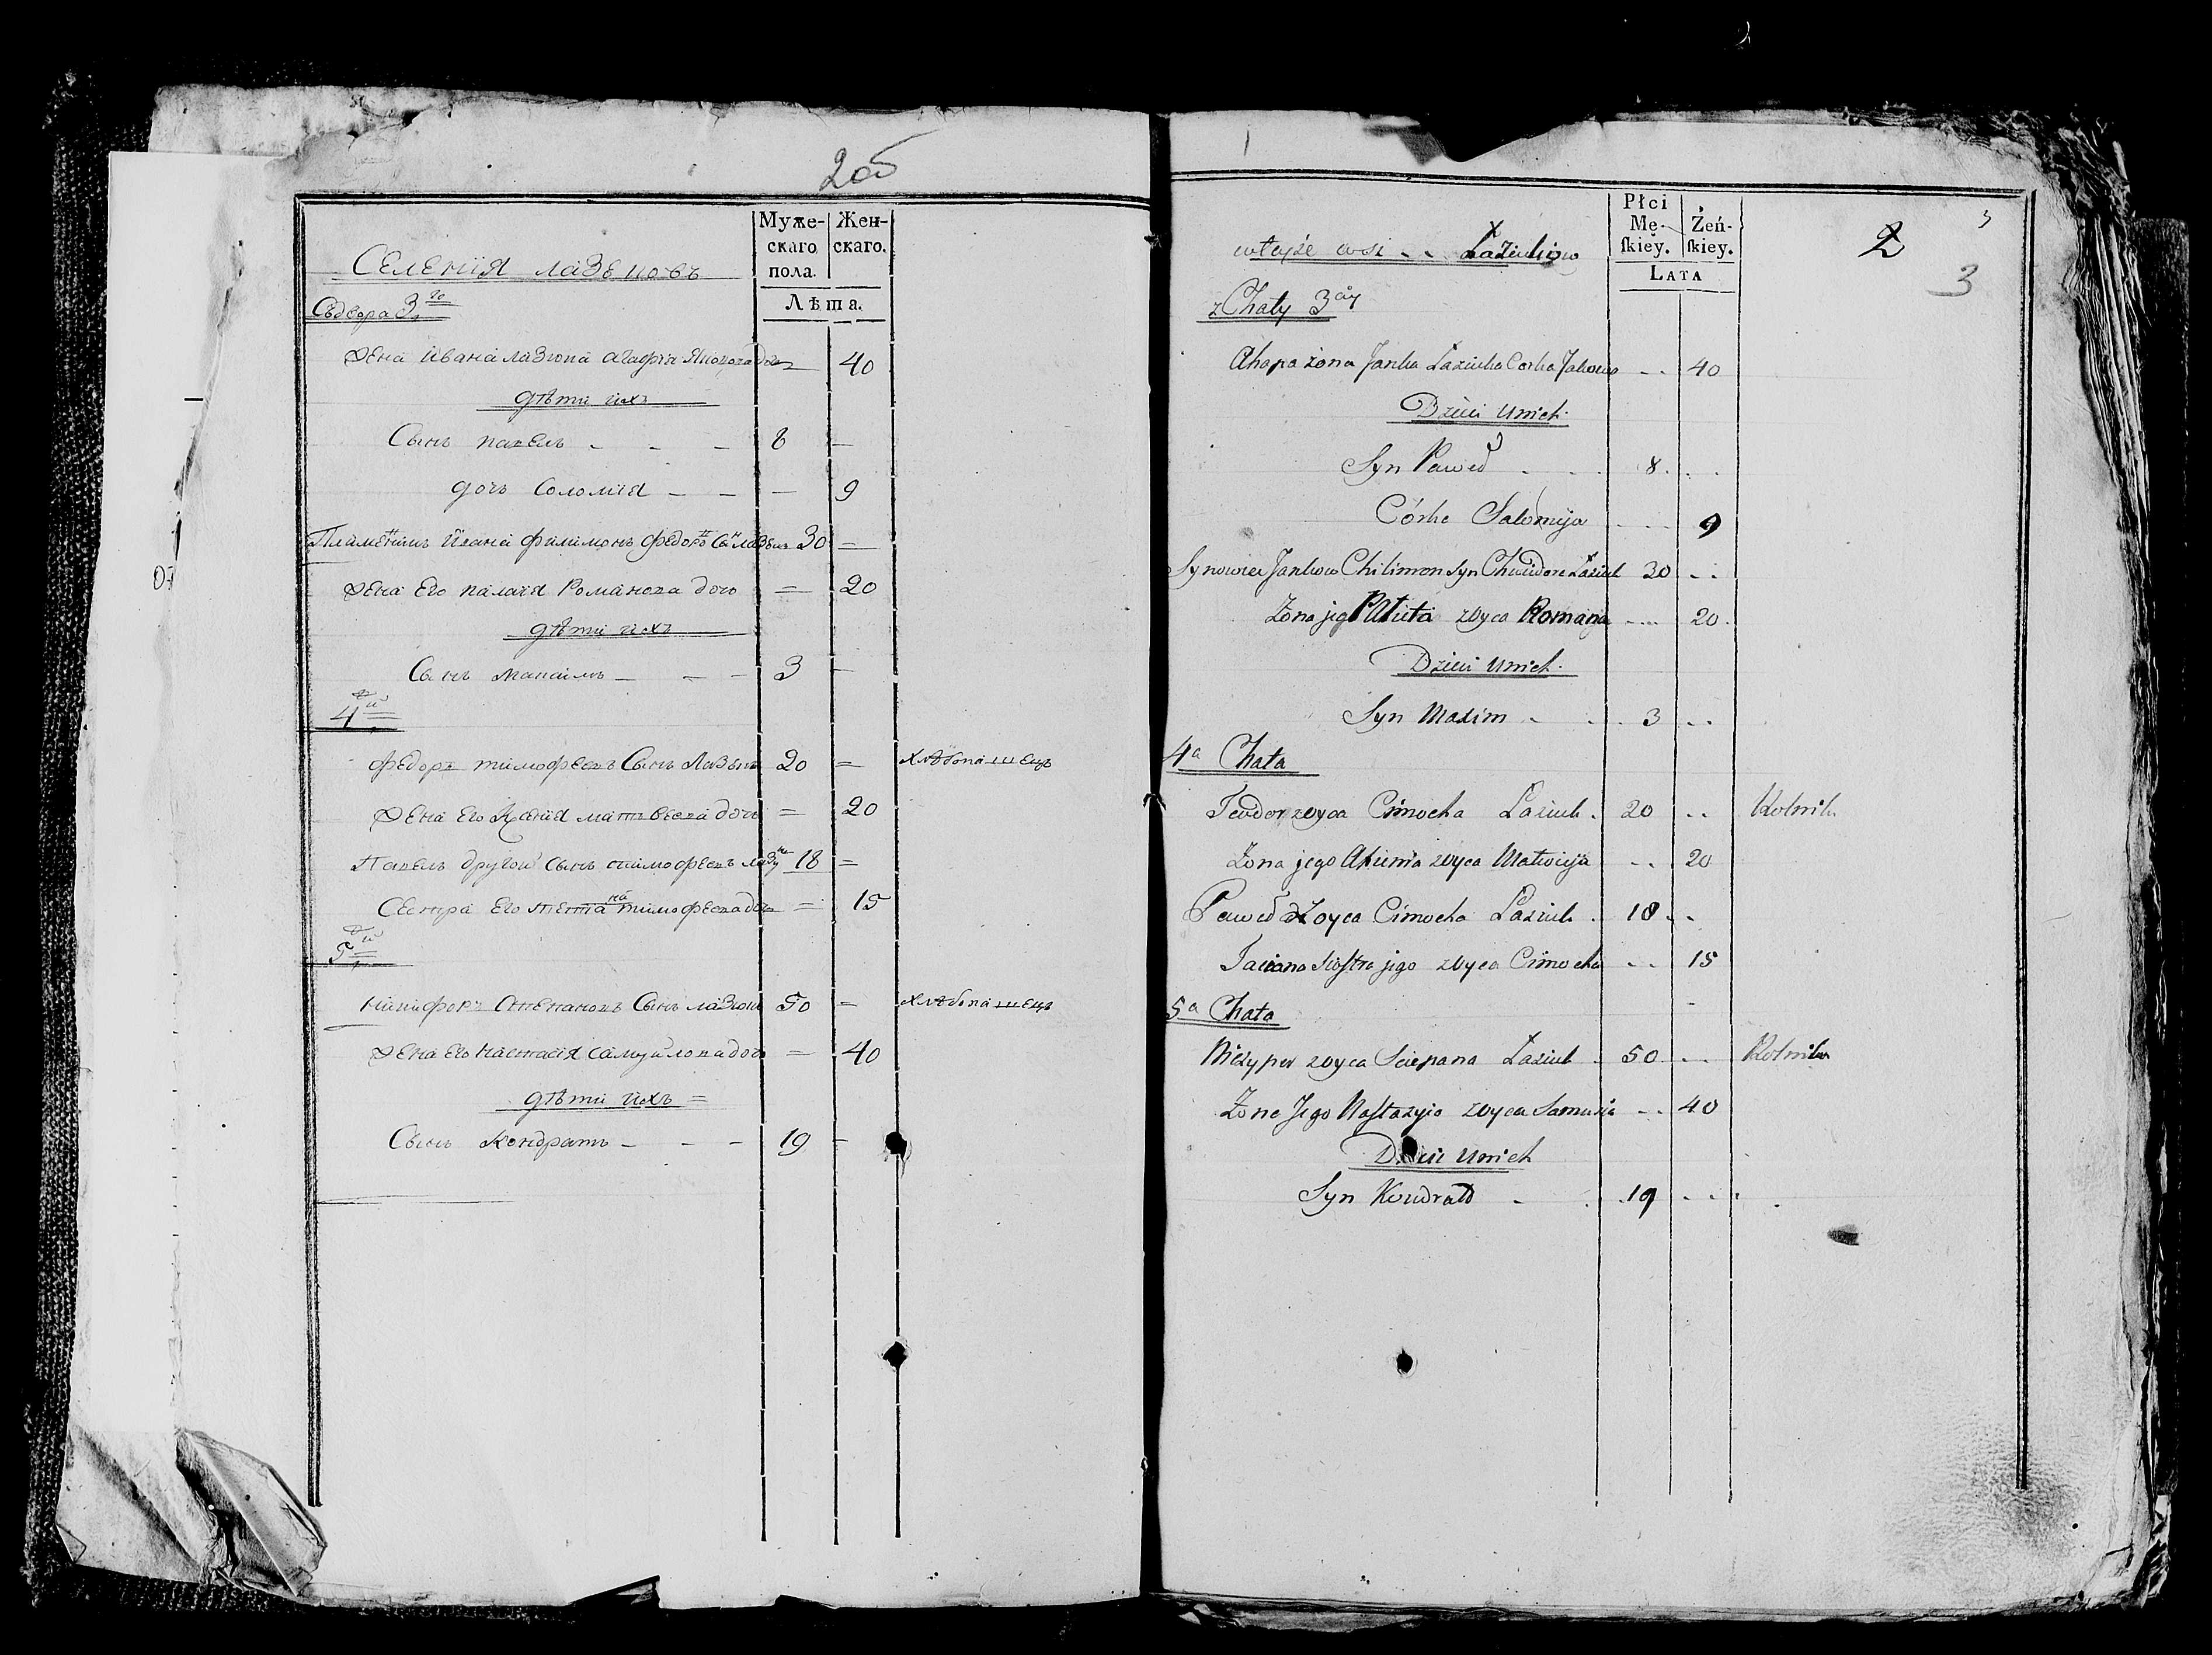 2об
Селенiя Лазеновъ
Муже-скаго пола. Жен-скаго.
Лѣта.
Съ двора 3го
Жена Ивана Лазюка Агафия Якова дочь — 40
дѣти ихъ
Сынъ Павелъ - - - 8 —
дочь Соломия - - — 9
Племѣникъ Ивана Филимонъ Федоръ Сынъ 30 —
Жена Его Палагiя Романова дочь — 20
дѣти ихъ
Сынъ Максимъ - - - 3 —
4й
Федоръ Тимофеевъ Сынъ Лазюкъ 20 = Хлѣбопашецъ
Жена Его Ксенiя Матвеева дочь = 20
Павелъ другой Сынъ Тимофеевъ 18 =
Сестра Его Тимофеева дочь = 15
5й
Никифоръ Степановъ Сынъ Лазюкъ 50 = Хлѣбопашецъ
Жена Его Настасiя Самуйлова дочь = 40
дѣти ихъ =
Сынъ Кондратъ - - - 19 -
2
3
wteyże wsi .. Łaziukow
Płci Mę-skiey. Żeń-skiey.
Lata
z Chaty 3ciey
Ahapa żona Janka Łaziuka Corka Jakowa .. 40
Dzieci Unich.
Syn Paweł . . 8 . .
Córka Salomija . . . 9
Synowiec Jankow Chilimon Syn Chwidora Łaziuk 30 ..
Żona jego zoyca Romana ... 20.
Dzieci Unich.
Syn Maxim . . 3 ..
4a Chata
Teodor zoyca Cimocha Łaziuk . 20 .. Rolnik
Żona jego Axienia zoyca Matwieja .. 20
Paweł zoyca Cimocha Łaziuk . 18 ..
Taciana Siostra jego zoyca Cimocha .. 15
5a Chata
Niczypor zoyca Sciepana Łaziuk . 50 ... Rolnik
Żona Jego Nastazyia zoyca Samusia .. 40
Dzieci Unich
Syn Kondrat . . 19 ...